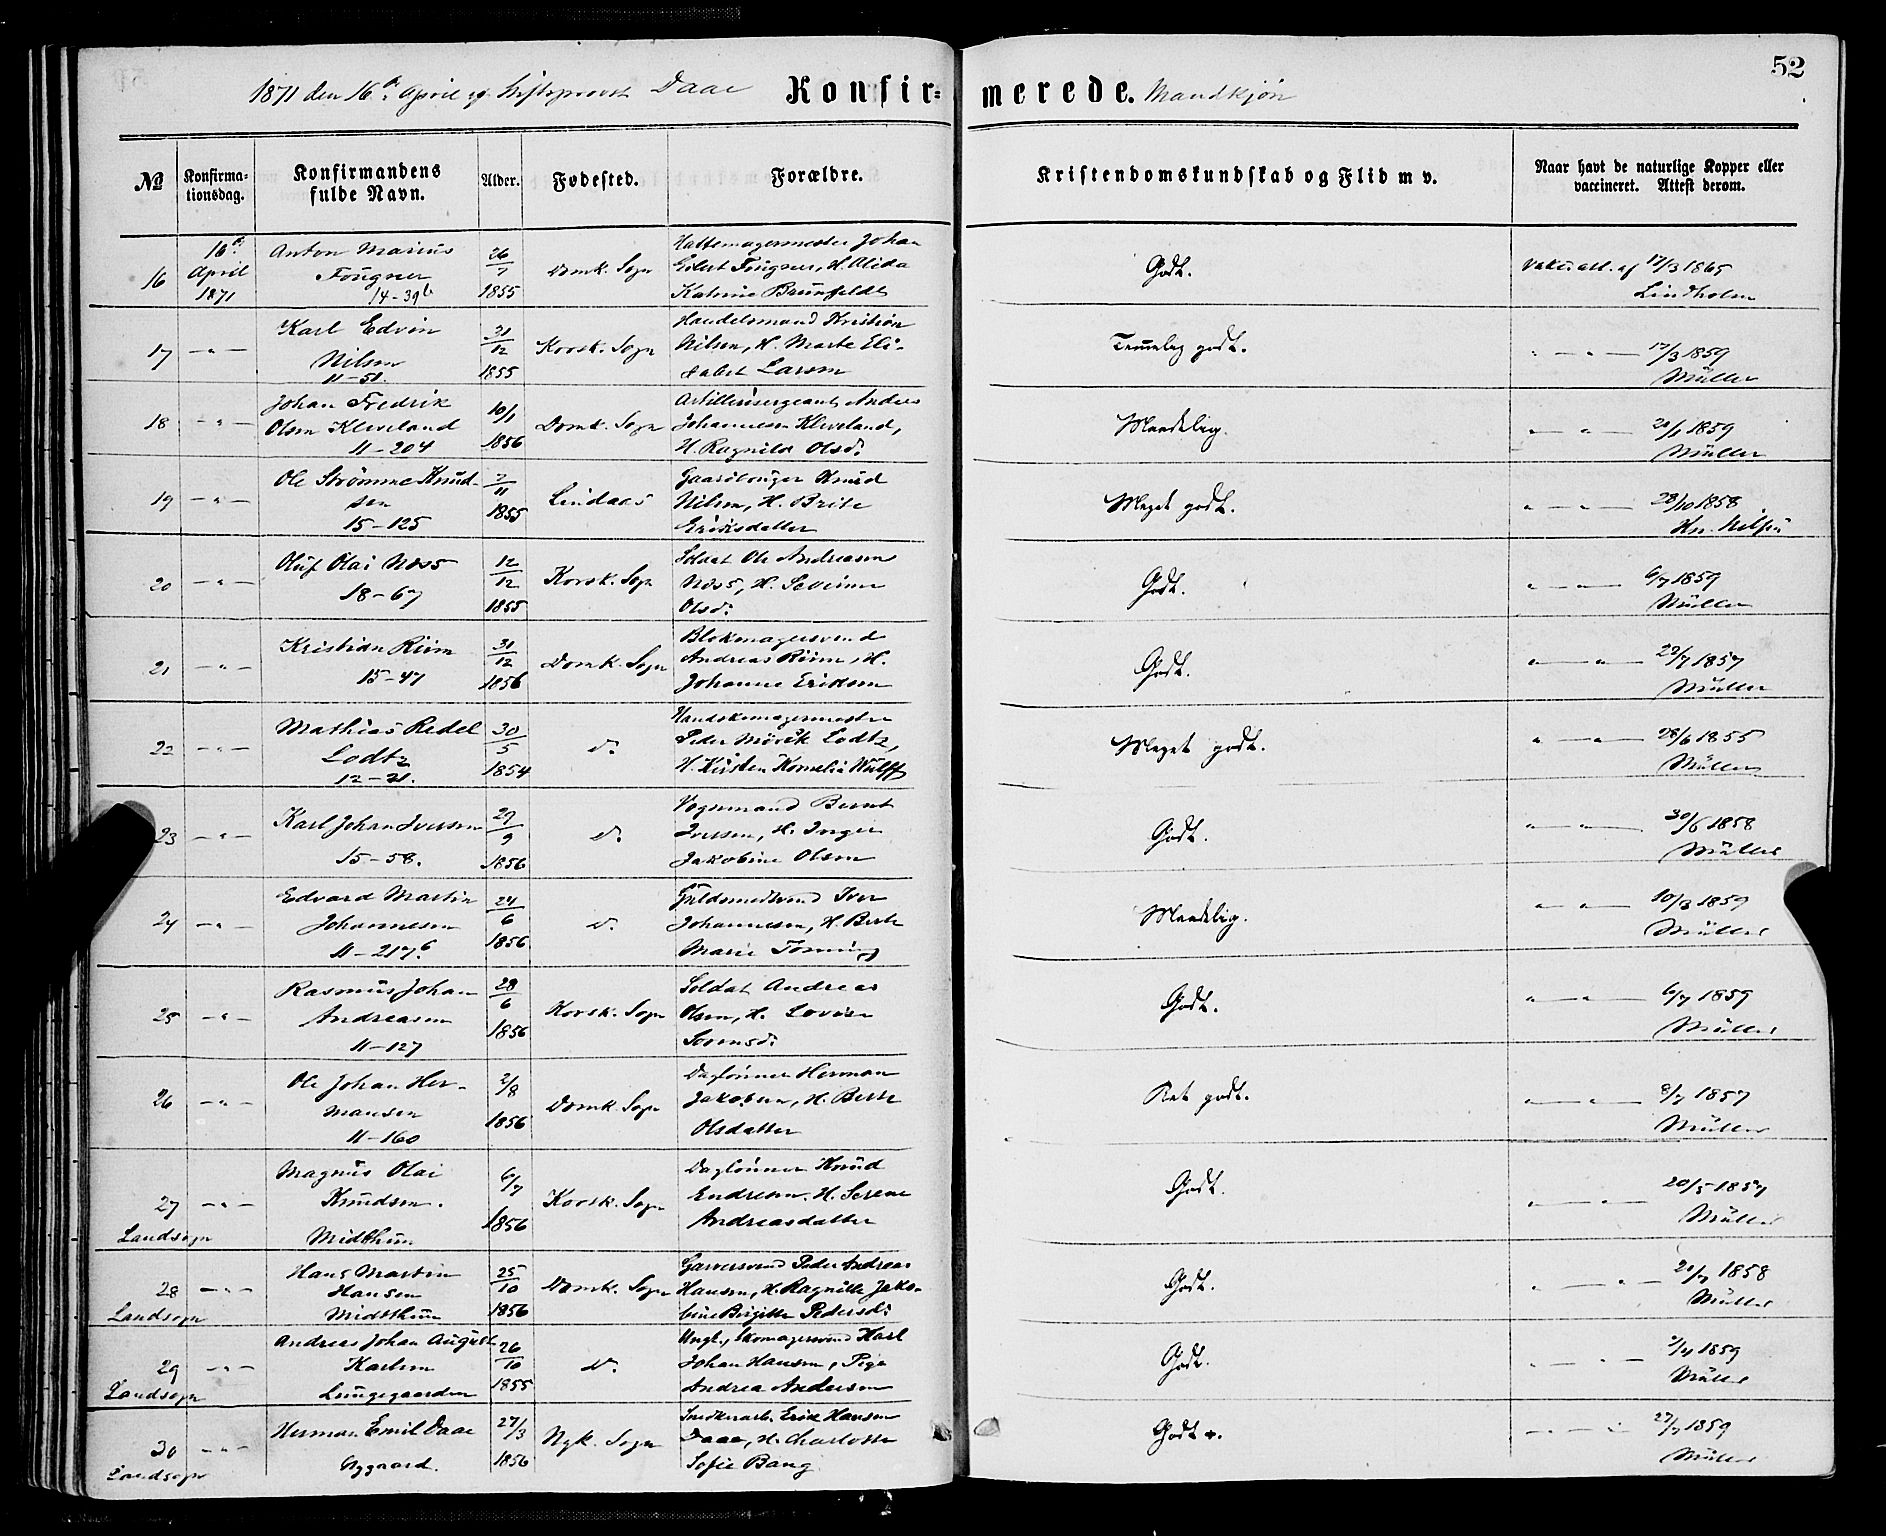 52
1871 den 16de April af Stiftsprovst Daae Konfir=merede. Mandkjøn
№ Konfirma-tionsdag. Konfirmandens fulde Navn. Alder. Fødested. Forældre. Kristendomskundskab og Flid m v. Naar havt de naturlige Kopper eller vaccineret. Attest derom.
16de Anton Marius 26/7 Hattemagermester Johan
16 April Fougner Domk. Sogn Eilert Fougner, H. Alida Godt. Vakc. att. af 17/3 1865
1871 14-39b 1855 Katrine Brunfeldt Lindholm
Karl Edvin 31/12 Handelsmand Kristian
17 -"- Nilsen Korsk. Sogn Nilsen, H. Marte Eli- Temmelig godt. " - " - 17/3 1859
11-51. 1855 sabet Larsen Müller
Johan Fredrik 10/1 Artillerisergeant Anders
18 -"- Olsen Kleveland Domk. Sogn Johannesen Kleveland, Maadelig. " - " - 20/1 1859
11-204 1856 H. Ragnilda Olsd: Müller
Ole Strømme Knud- 2/11 Gaardbruger Knud
19 -"- sen Lindaas Nilsen, H. Brite Meget godt. " - " - 28/10 1858
15-125 1855 Eriksdatter
Oluf Olai Næss 12/12 Soldat Ole Andreasen
20 -"- 18-67 Korsk. Sogn Næss, H. Severine Godt. " - " - 6/7 1859
1855 Olsd: Müller
Kristian Riim 31/12 Blokmagersvend
21 -"- 15-47 Domk. Sogn Andreas Riim, H. Godt. " - " - 22/7 1857
1856 Johanne Eriksen Müller
Mathias Redel 30/5 Handskemagermester
22 -"- Lodtz do Peder Mørck Lodtz, Meget godt. " - " - 28/6 1855
12-21. 1854 H. Kirsten Kornelia Wulff Müller
Karl Johan Iversen 29/9 Vognmand Bernt
23 -"- 15-58. do Iversen, H. Inger Godt. " - " - 30/6 1858
1856 Jakobine Olsen Müller
Edvard Martin 24/6 Guldsmedsvend Iver
24 -"- Johannesen do Johannesen, H. Berte Maadelig. " - " - 10/3 1859
11-217b 1856 Marie Tønning Müller
Rasmus Johan 28/6 Soldat Andreas
25 -"- Andreasen Korsk. Sogn Olsen, H. Lovise Godt. " - " - 6/7 1859
11-127 1856 Sørensd: Müller
Ole Johan Her- 2/8 Daglønner Herman
26 -"- mansen Domk. Sogn Jakobsen, H. Berte Ret godt. " - " - 8/7 1857
11-160 1856 Olsdatter Müller
Magnus Olai 6/7 Daglønner Knud
27 -"- Knudsen. Korsk. Sogn Endresen, H. Serene Godt. " - " - 20/5 1857
Landsogn Midtthun 1856 Andreasdatter Müller
Hans Martin 25/10 Garversvend Peder Andreas
28 -"- Hansen Domk. Sogn Hansen, H. Ragnilde Jako- Godt. " - " - 20/7 1858
Landsogn Midtthun 1856 bine Birgitte Pedersd: Müller
Andreas Johan August 26/10 Ungk., Skomagersvend Karl
29 -"- Karlsen do Johan Hansen, Pige Godt. " - " - 1859
Landsogn Lungegaarden 1855 Andrea Andersen Müller
Herman Emil Daae 27/3 Snedkerarb. Erik Hansen
30 -"- Nyk. Sogn Daae, H. Charlotte Godt +. " - " - 27/7 1859
Landsogn Nygaard. 1856 Sofie Bang Müller